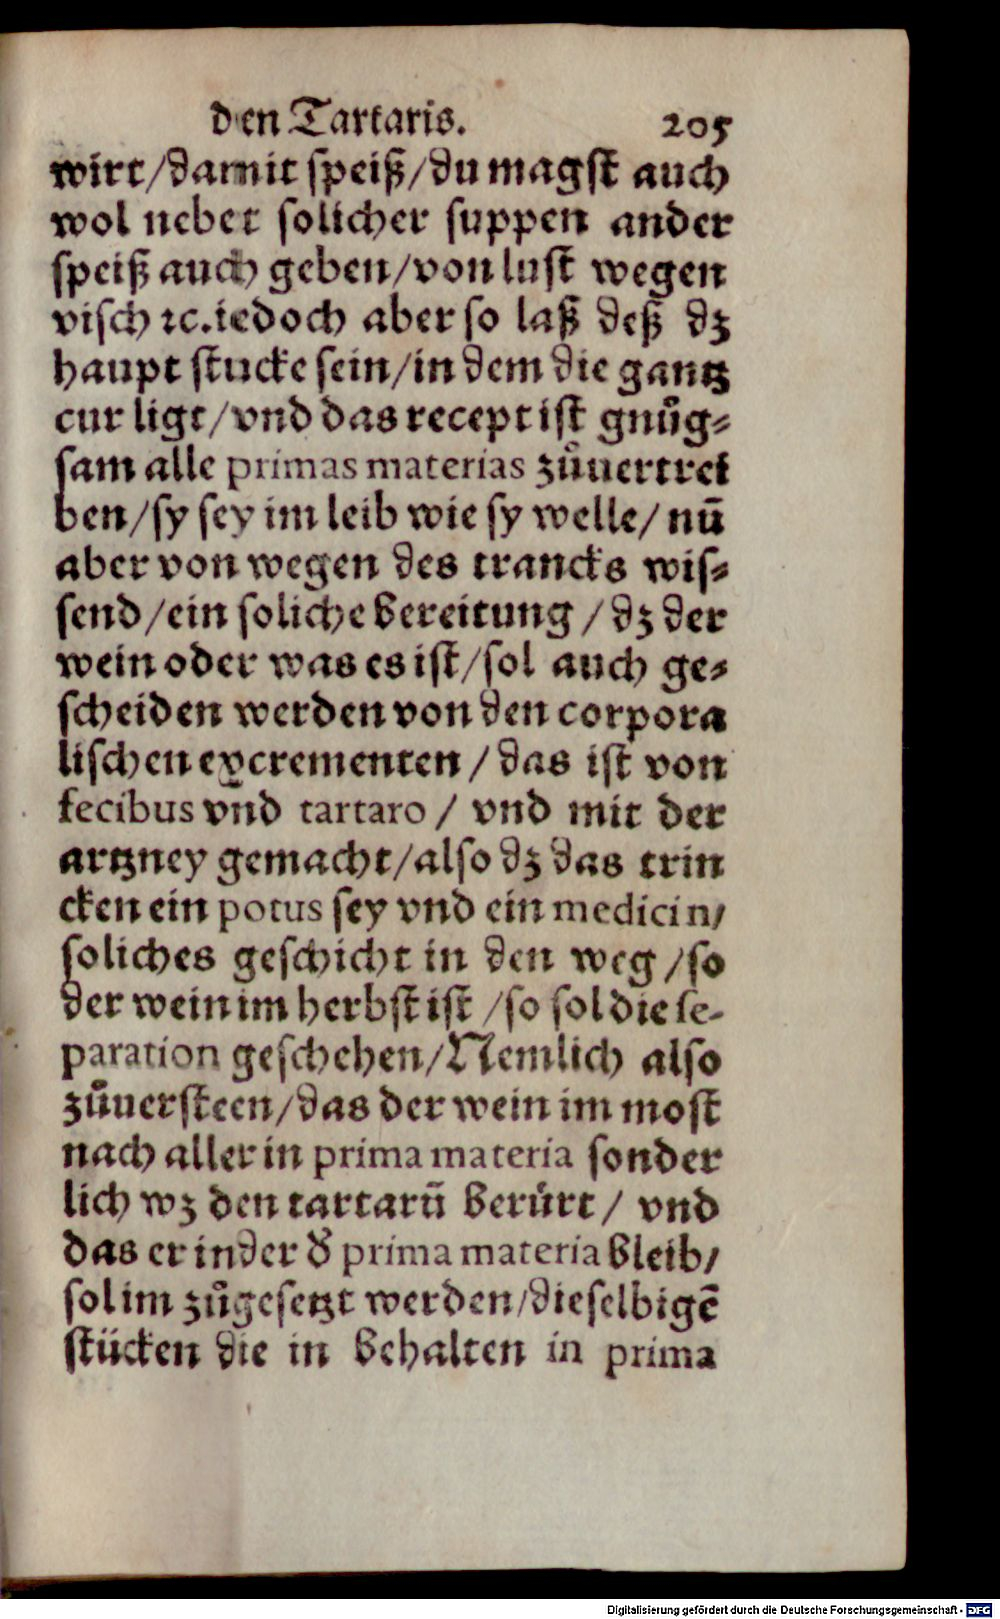 den Tartaris. 205
wirt/damit speiß/du magst auch
wol nebet solicher suppen ander
speiß auch geben/von lust wegen
visch ꝛc.iedoch aber so laß deß dz
haupt stucke sein/in dem die gantz
cur ligt/vnd das recept ist gnůg⸗
sam alle primas materias zůuertrei
ben/sy sey im leib wie sy welle/nū
aber von wegen des trancks wis⸗
send/ein soliche bereitung/dz der
wein oder was es ist/sol auch ge⸗
scheiden werden von den corpora
lischen excrementen/das ist von
fecibus vnd tartaro/ vnd mit der
artzney gemacht/also dz das trin
cken ein potus sey vnd ein medicin/
soliches geschicht in den weg/so
der wein im herbst ist/so sol die se⸗
paration geschehen/Nemlich also
zůuersteen/das der wein im most
nach aller in prima materia sonder
lich wz den tartarū berürt/ vnd
das er in der d̕ prima materia bleib/
sol im zůgesetzt werden/dieselbigē
stücken die in behalten in prima
Digitalisierung gefördert durch die Deutsche Forschungsgemeinschaft - DFG